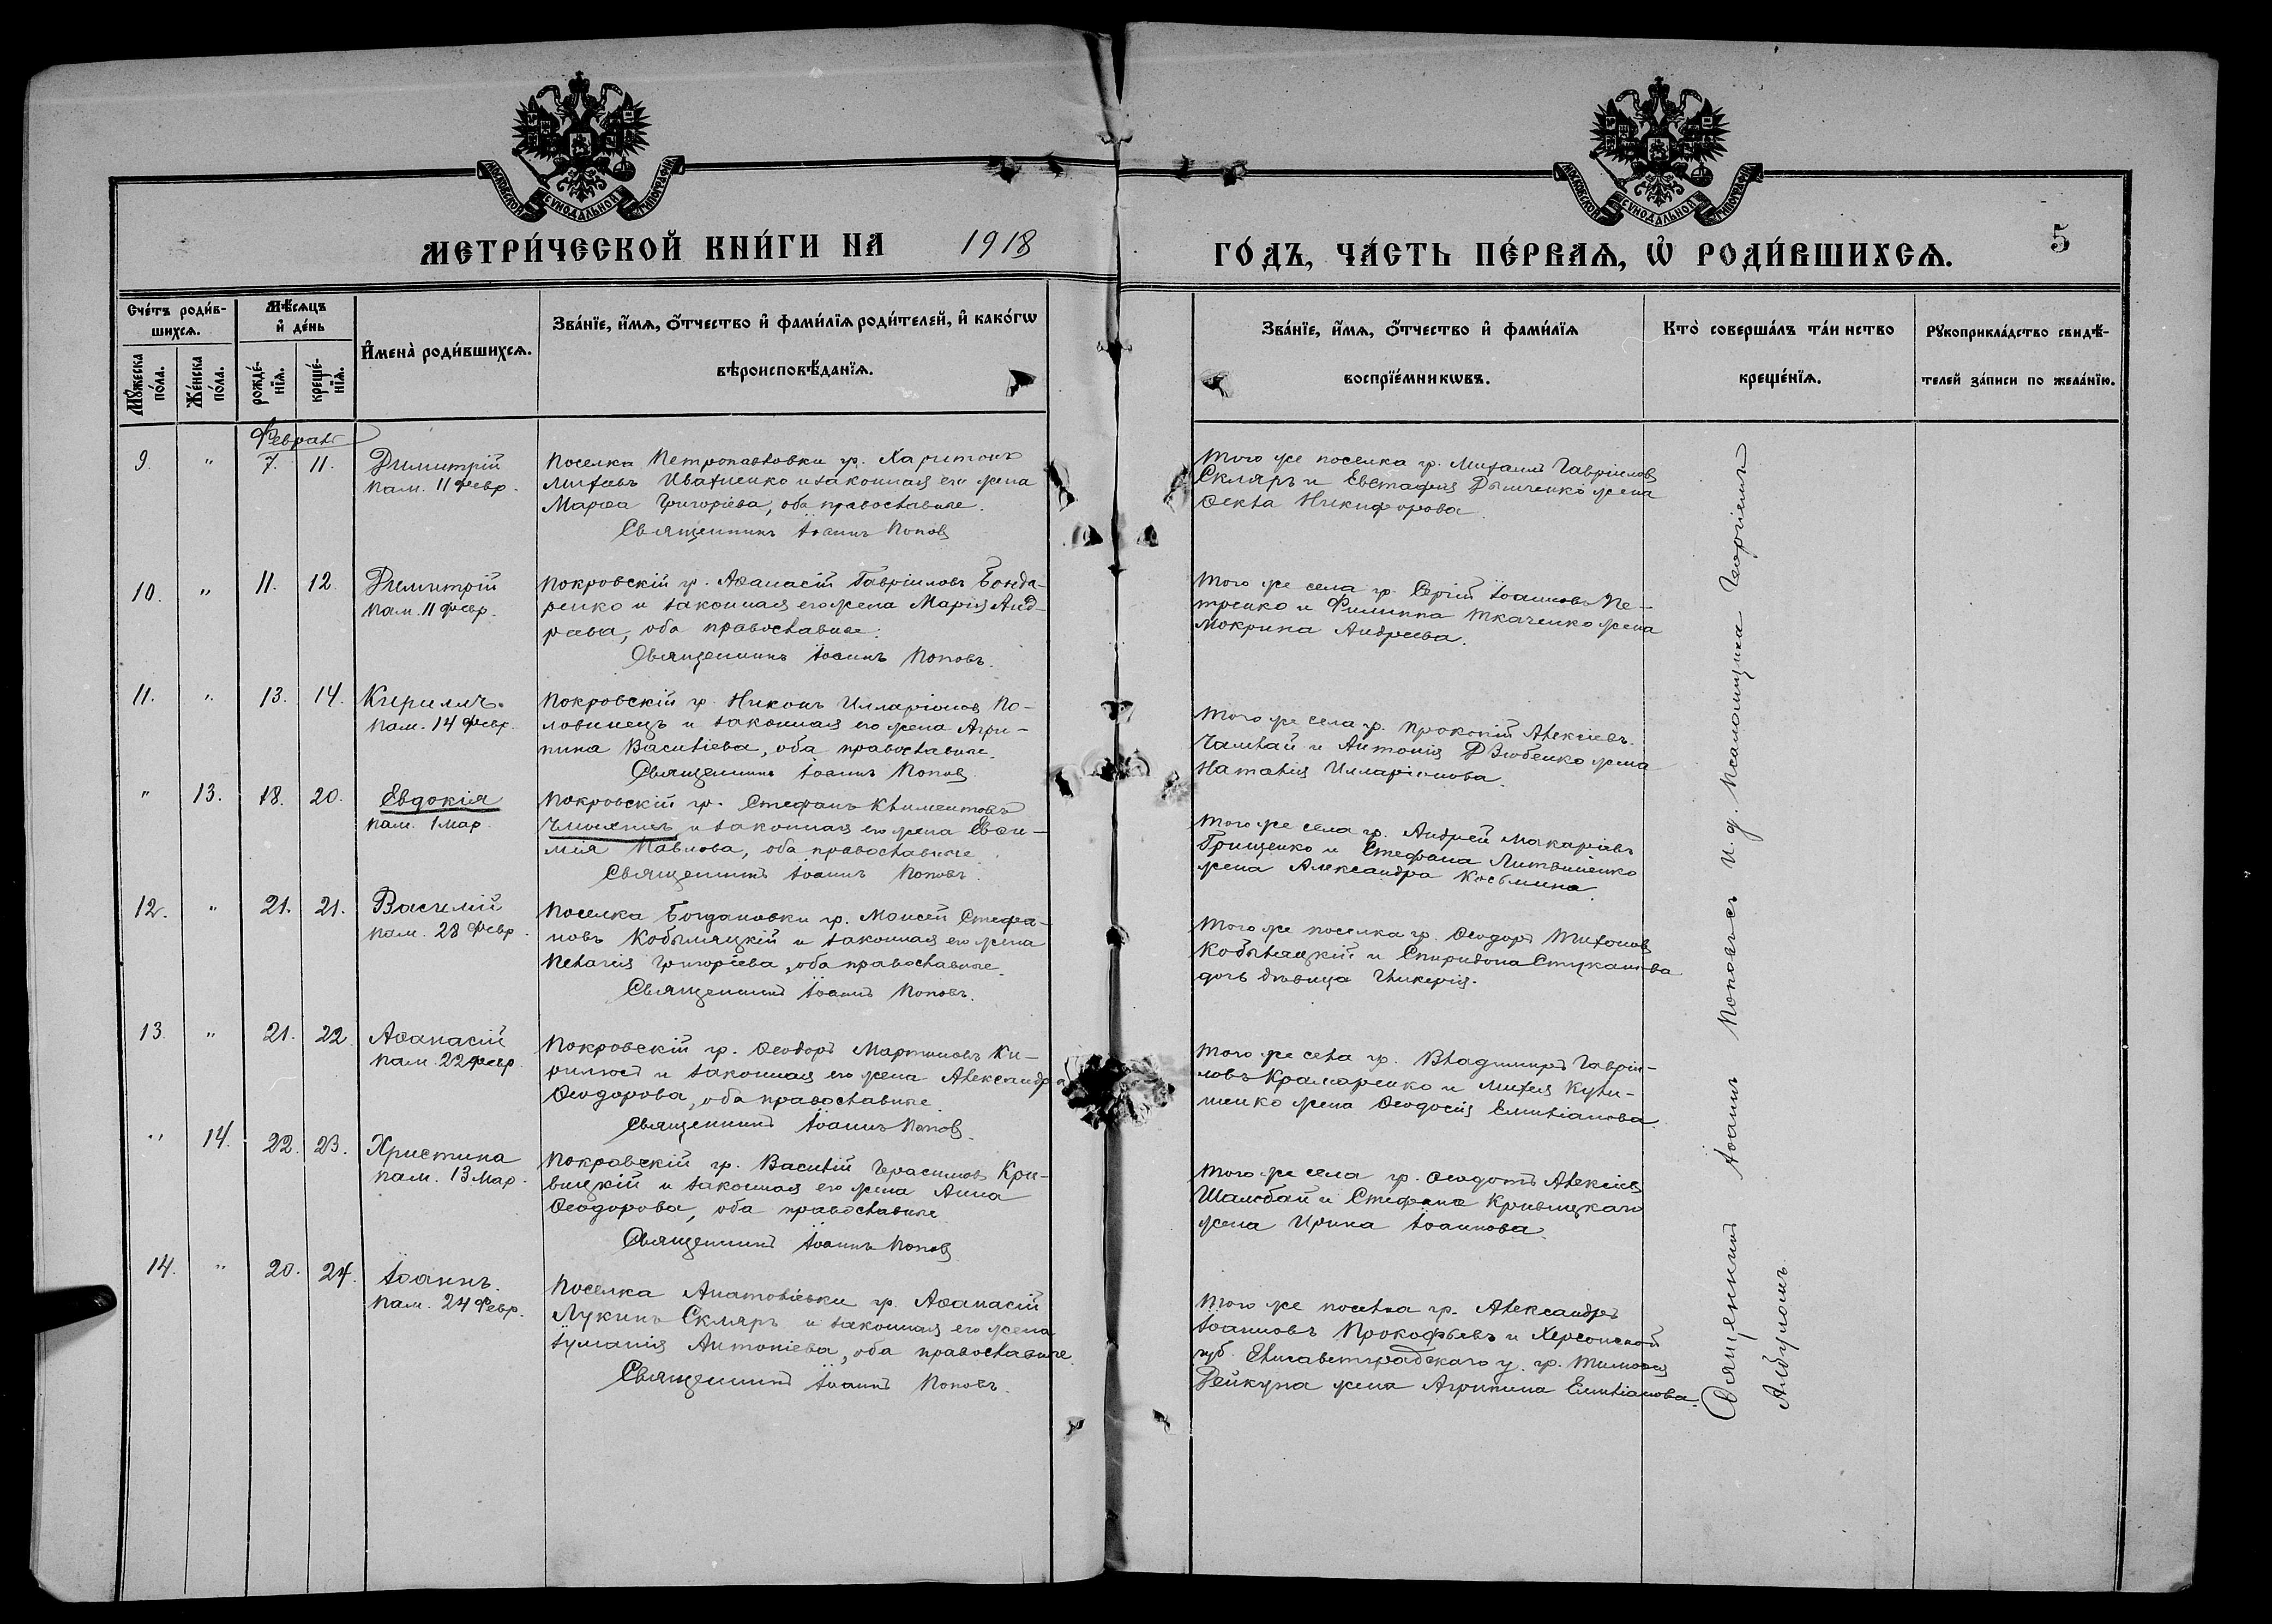 МОСКОВСКОЙ СѴНОДАЛЬНОЙ ТИПОГРАФІИ
МОСКОВСКОЙ СѴНОДАЛЬНОЙ ТИПОГРАФІИ
МЕТРИ́ЧЕСКОЙ КНИ́ГИ НА 1918
ГО́ДЪ, ЧА́СТЬ ПЕ́РВАѦ, Ѡ҆ РОДИ́ВШИХСѦ.
5
Сче́тъ роди́в-
шихсѧ.
Мꙋ́жеска по́ла.
Же́нска по́ла.
Мѣ́сѧцъ
и҆ де́нь
рожде́-
нїѧ.
креще́-
нїѧ.
И҆мена̀ роди́вшихсѧ.
Зва́нїе, и҆́мѧ, ѻ҆́тчество и҆ фами́лїѧ роди́телей, и҆ како́гѡ
вѣроисповѣ́данїѧ.
Зва́нїе, и҆́мѧ, ѻ҆́тчество и҆ фами́лїѧ
воспрїе́мникѡвъ.
Кто̀ соверша́лъ та́инство
креще́нїѧ.
Рꙋкоприкла́дство свидѣ́-
телей за́писи по жела́нїю.
Февраль
9. " 7. 11. Димитрій
пам. 11 февр.
Поселка Петропавловки гр. Харитонъ
Ивахненко и законная его жена
Марѳа Григоріева, оба православные.
Священникъ Іоаннъ Поповъ
Того же поселка гр. Михаилъ Гавріиловъ
Скляръ и Евстафія жена
Ѳекла Никифорова.
10. " 11. 12. Димитрій
пам. 11 февр.
Покровскій гр. Аѳанасій Гавріиловъ Бонда-
ренко и законная его жена Марія Анд-
реева, оба православные.
Священникъ Іоаннъ Поповъ.
Того же села гр. Сергій Іоанновъ Пе-
тренко и Филиппа Ткаченко жена
Мокрина Андреева.
11. " 13. 14. Кириллъ.
пам. 14 февр.
Покровскій гр. Никонъ Илларіоновъ По-
ловинецъ и законная его жена Агри-
пина Василіева, оба православные.
Священникъ Іоаннъ Поповъ
Того же села гр. Алексіевъ
и Антонія Дзюбенко жена
Наталія Илларіонова.
" 13. 18. 20. Евдокія
пам. 1 мар.
Покровскій гр. Стефанъ Климентовъ
и законная его жена Евѳи-
мія Павлова, оба православные.
Священникъ Іоаннъ Поповъ.
Того же села гр. Андрей Макаріевъ
Грищенко и Стефана Литвиненко
жена Александра Косьмина.
12. " 21. 21. Василій
пам. 28 февр.
Поселка Богдановки гр. Моисей Стефа-
новъ Кобыляцкій и законная его жена
Пелагія Григоріева, оба православные.
Священникъ Іоаннъ Поповъ.
Того же поселка гр. Ѳеодоръ Тихоновъ
Кобыляцкій и Спиридона Стуканова
дочь дѣвица Гликерія.
13. " 21. 22. Аѳанасій
пам. 22 февр.
Покровскій гр. Ѳеодоръ Мартиновъ Ки-
и законная его жена Александра
Ѳеодорова, оба православные.
Священникъ Іоаннъ Поповъ.
Того же села гр. Владиміръ Гавріи-
ловъ Крамаренко и
жена Ѳеодосія Емиліанова.
" 14. 22. 23. Христина
пам. 13 мар.
Покровскій гр. Василій Герасимовъ Кри-
вицкій и законная его жена Анна
Ѳеодорова, оба православные
Священникъ Іоаннъ Поповъ
Того же села гр. Ѳеодотъ Алексіевъ
и Стефана Кривицкаго
жена Ирина Іоаннова.
14. " 20. 24. Іоаннъ.
пам. 24 февр.
Поселка Анатоліевки гр. Аѳанасій
Лукинъ Скляръ и законная его жена
Іуліанія Антоніева, оба православные.
Священникъ Іоаннъ Поповъ.
Того же поселка гр. Александръ
Іоанновъ Прокофьевъ и Херсонской
губ. Елисаветградскаго у. гр. Тимоѳея
Дейкуна жена Агрипина Емиліанова.
Священникъ Іоаннъ Поповъ съ И. д. псаломщика Георгіемъ